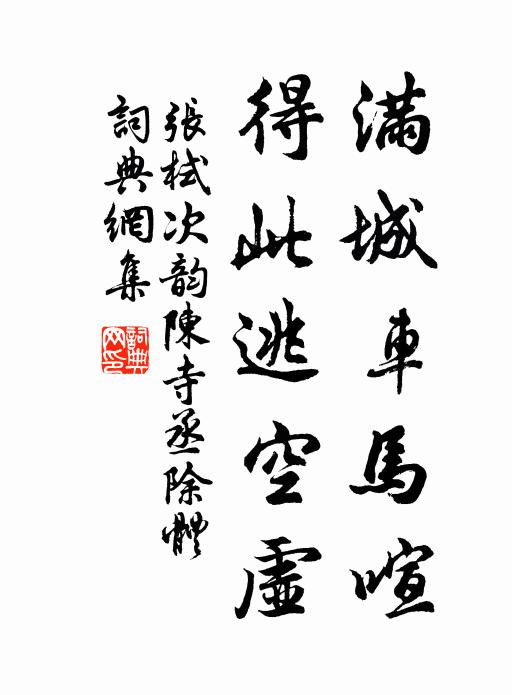 滿城車馬喧
得此逃空虛
張栻次韵陳寺丞除體
詞典網集
詞典網印